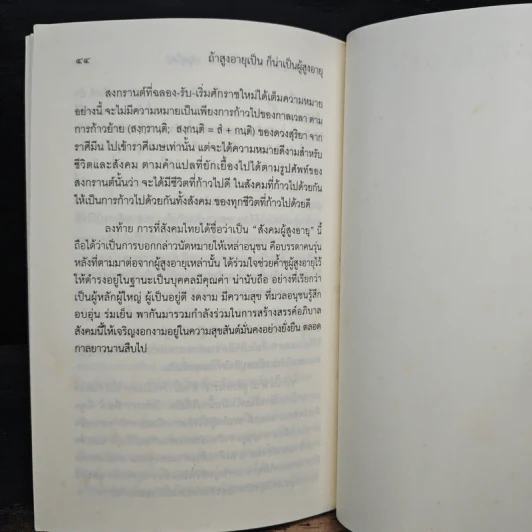 ๔๔ ถ้าสูงอายุเป็น ก็น่าเป็นผู้สูงอายุ
สงกรานต์ที่ฉลอง-รับ-เริ่มศักราชใหม่ได้เต็มความหมาย
อย่างนี้ จะไม่มีความหมายเป็นเพียงการก้าวไปของกาลเวลา ตาม
การก้าวย้าย (สงฺกฺรานฺติ; สงฺกนฺติ = สํ + กนฺติ) ของดวงสุริยา จาก
ราศีมีน ไปเข้าราศีเมษเท่านั้น แต่จะได้ความหมายดีงามสำหรับ
ชีวิตและสังคม ตามคำแปลที่ยักเยื้องไปได้ตามรูปศัพท์ของ
สงกรานต์นั้นว่า จะได้มีชีวิตที่ก้าวไปดี ในสังคมที่ก้าวไปด้วยกัน
ให้เป็นการก้าวไปด้วยกันทั้งสังคม ของทุกชีวิตที่ก้าวไปด้วยดี
ลงท้าย การที่สังคมไทยได้ชื่อว่าเป็น “สังคมผู้สูงอายุ” นี้
ถือได้ว่าเป็นการบอกกล่าวนัดหมายให้เหล่าอนุชน คือบรรดาคนรุ่น
หลังที่ตามมาต่อจากผู้สูงอายุเหล่านั้น ได้ร่วมใจช่วยค้ำชูผู้สูงอายุไว้
ให้ดำรงอยู่ในฐานะเป็นบุคคลมีคุณค่า น่านับถือ อย่างที่เรียกว่า
เป็นผู้หลักผู้ใหญ่ ผู้เป็นอยู่ดี งดงาม มีความสุข ที่มวลอนุชนรู้สึก
อบอุ่น ร่มเย็น พากันมารวมกำลังร่วมในการสร้างสรรค์อภิบาล
สังคมนี้ให้เจริญงอกงามอยู่ในความสุขสันต์มั่นคงอย่างยั่งยืน ตลอด
กาลยาวนานสืบไป